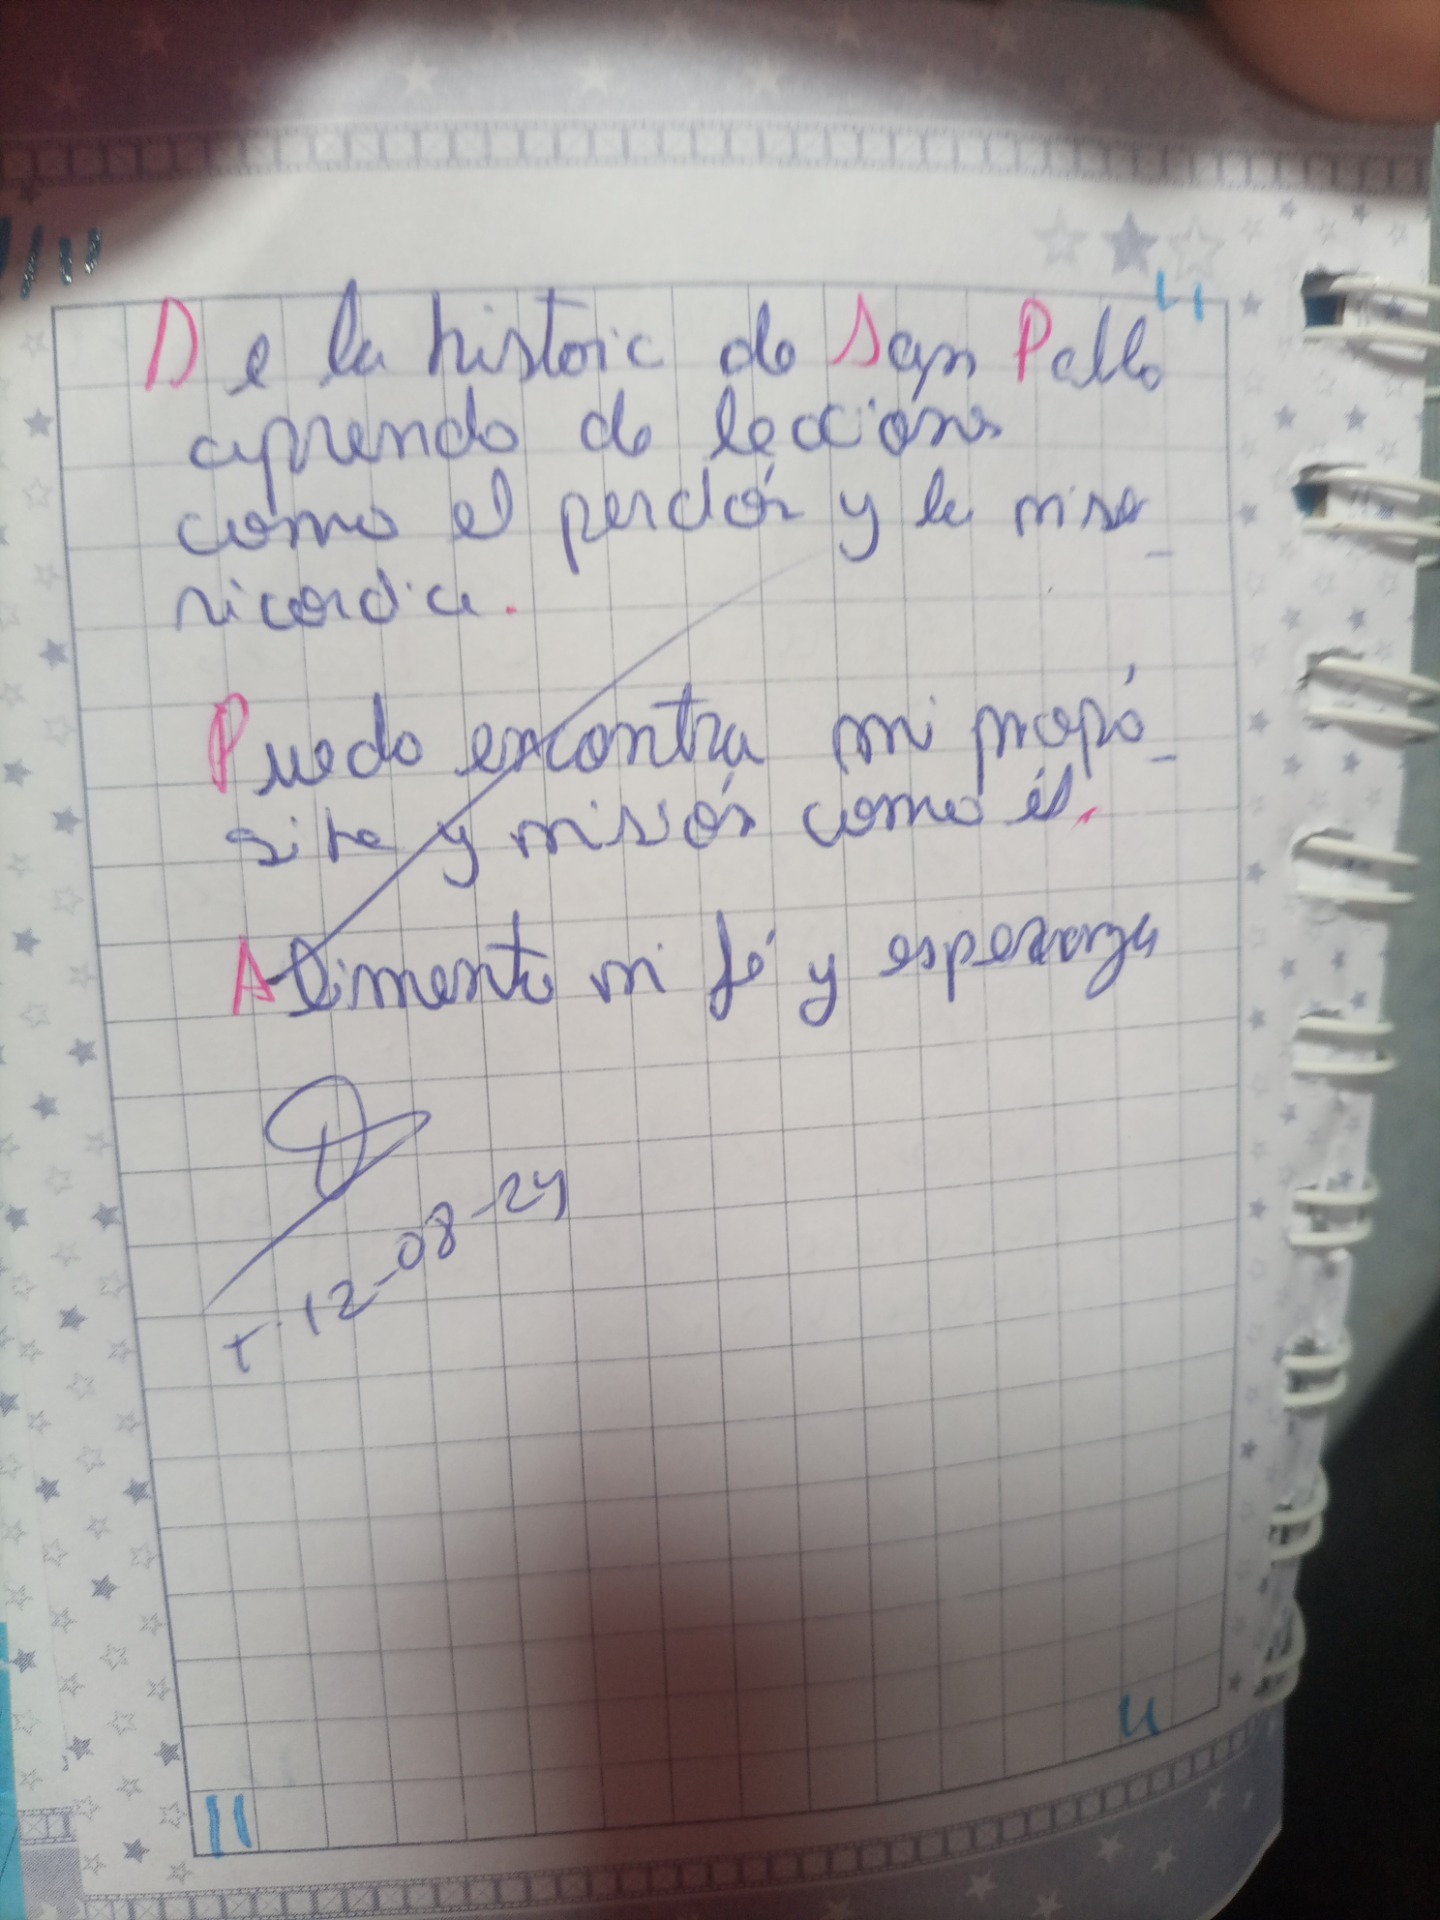 De la histoic de San Pablo
aprendo de lecciones
como el perdón y la mise_
ricordia.
Puedo encontra mi propó_
sito y misión como él.
Alimento mi fé y esperanza
12-08-24
11